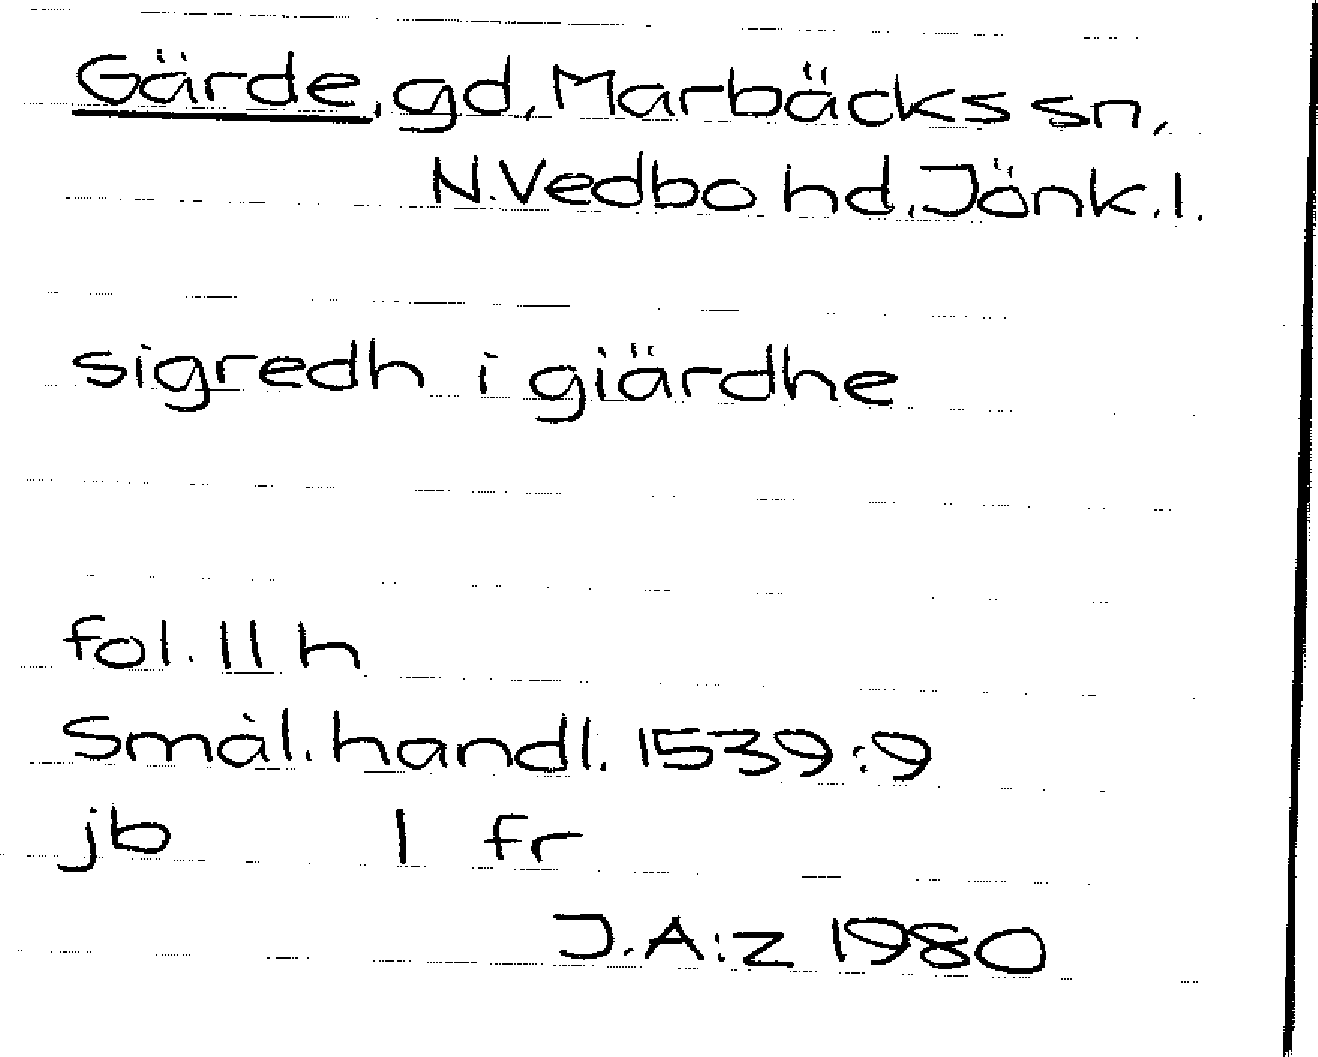 Gärde, gd, Marbäcks sn,
N. Vedbo hd. Jönk. l.
sigredh i giärdhe
fol. 11 h
Smål. handl. 1539:9
jb 1 fr
J.A:z 1980